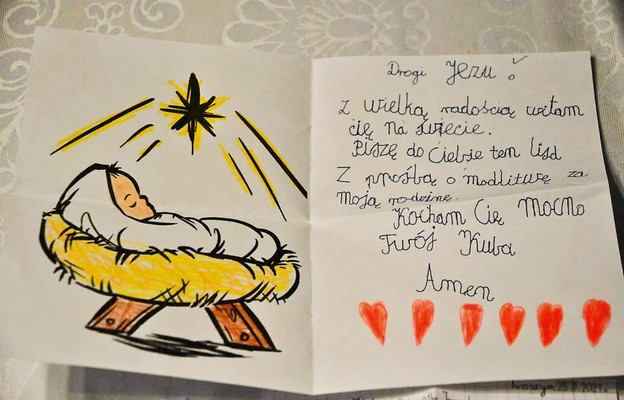 Drogi Jezu!
Z wielką radością witam
cię na świecie.
Piszę do Ciebie ten lisd
Z prośbą o modlitwę za
moją rodzinę.
Kocham Cię Mocno
Twój Kuba
Amen